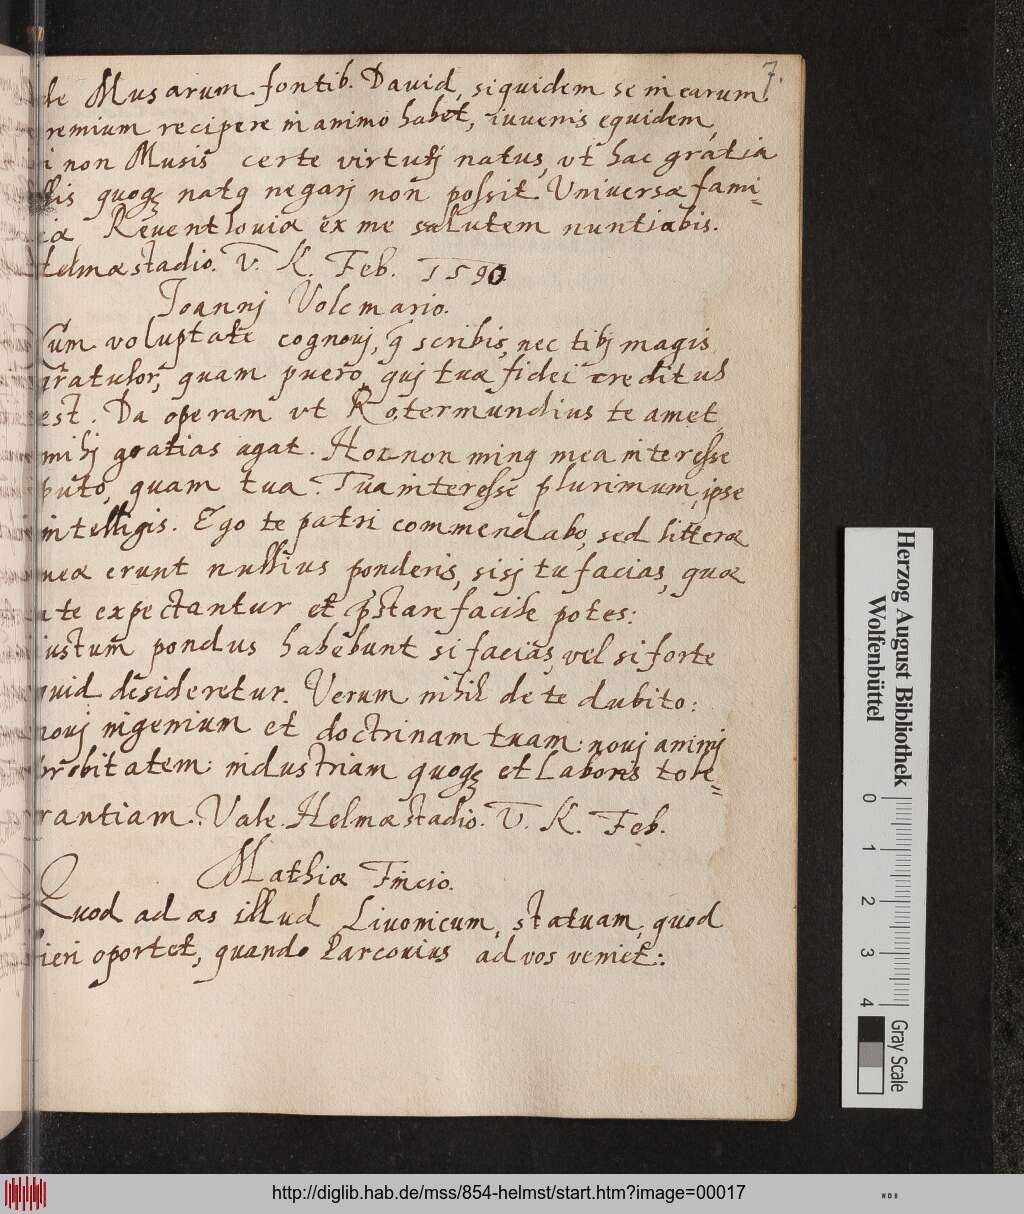 7.
de Musarum fontib. David, siquidem se in earum
remium recipere in animo habet, iuvenis equidem,
i non Musis certe virtutj natus, vt hac gratia
llis quoqȝ natq negarj non possit. Universæ fami-
iæ Reventloviæ ex me salutem nuntiabis.
Helmæstadio. V. K. Feb. 1590
Joannj Volcmario.
Cum voluptate cognovj, q̃ scribis, nec tibj magis
gratulor, quam puero, quj tuæ fidei creditus
est. Da operam vt Rotermundius te amet,
mihj gratias agat. Hoc non minq mea interesse
puto, quam tua. Tua interesse plurimum, ipse
intelligis. Ego te patri commendabo, sed litteræ
meæ erunt nullius ponderis, sisj tu facias, quæ
a te expectantur et p̃stare facile potes:
iustum pondus habebunt si facias, vel si forte
quid desideretur. Verum nihil de te dubito:
novj ingenium et doctrinam tuam: novj animj
probitatem: industriam quoqȝ et Laboris tole-
rantiam. Vale. Helmæstadio. V. K. Feb.
Mathiæ Fincio.
Quod ad æs illud Livonicum, statuam, quod
fieri oportet, quando Parcovius ad vos veniet:.
Herzog August Bibliothek
Wolfenbüttel
0 1 2 3 4
Gray Scale
http://diglib.hab.de/mss/854-helmst/start.htm?image=00017